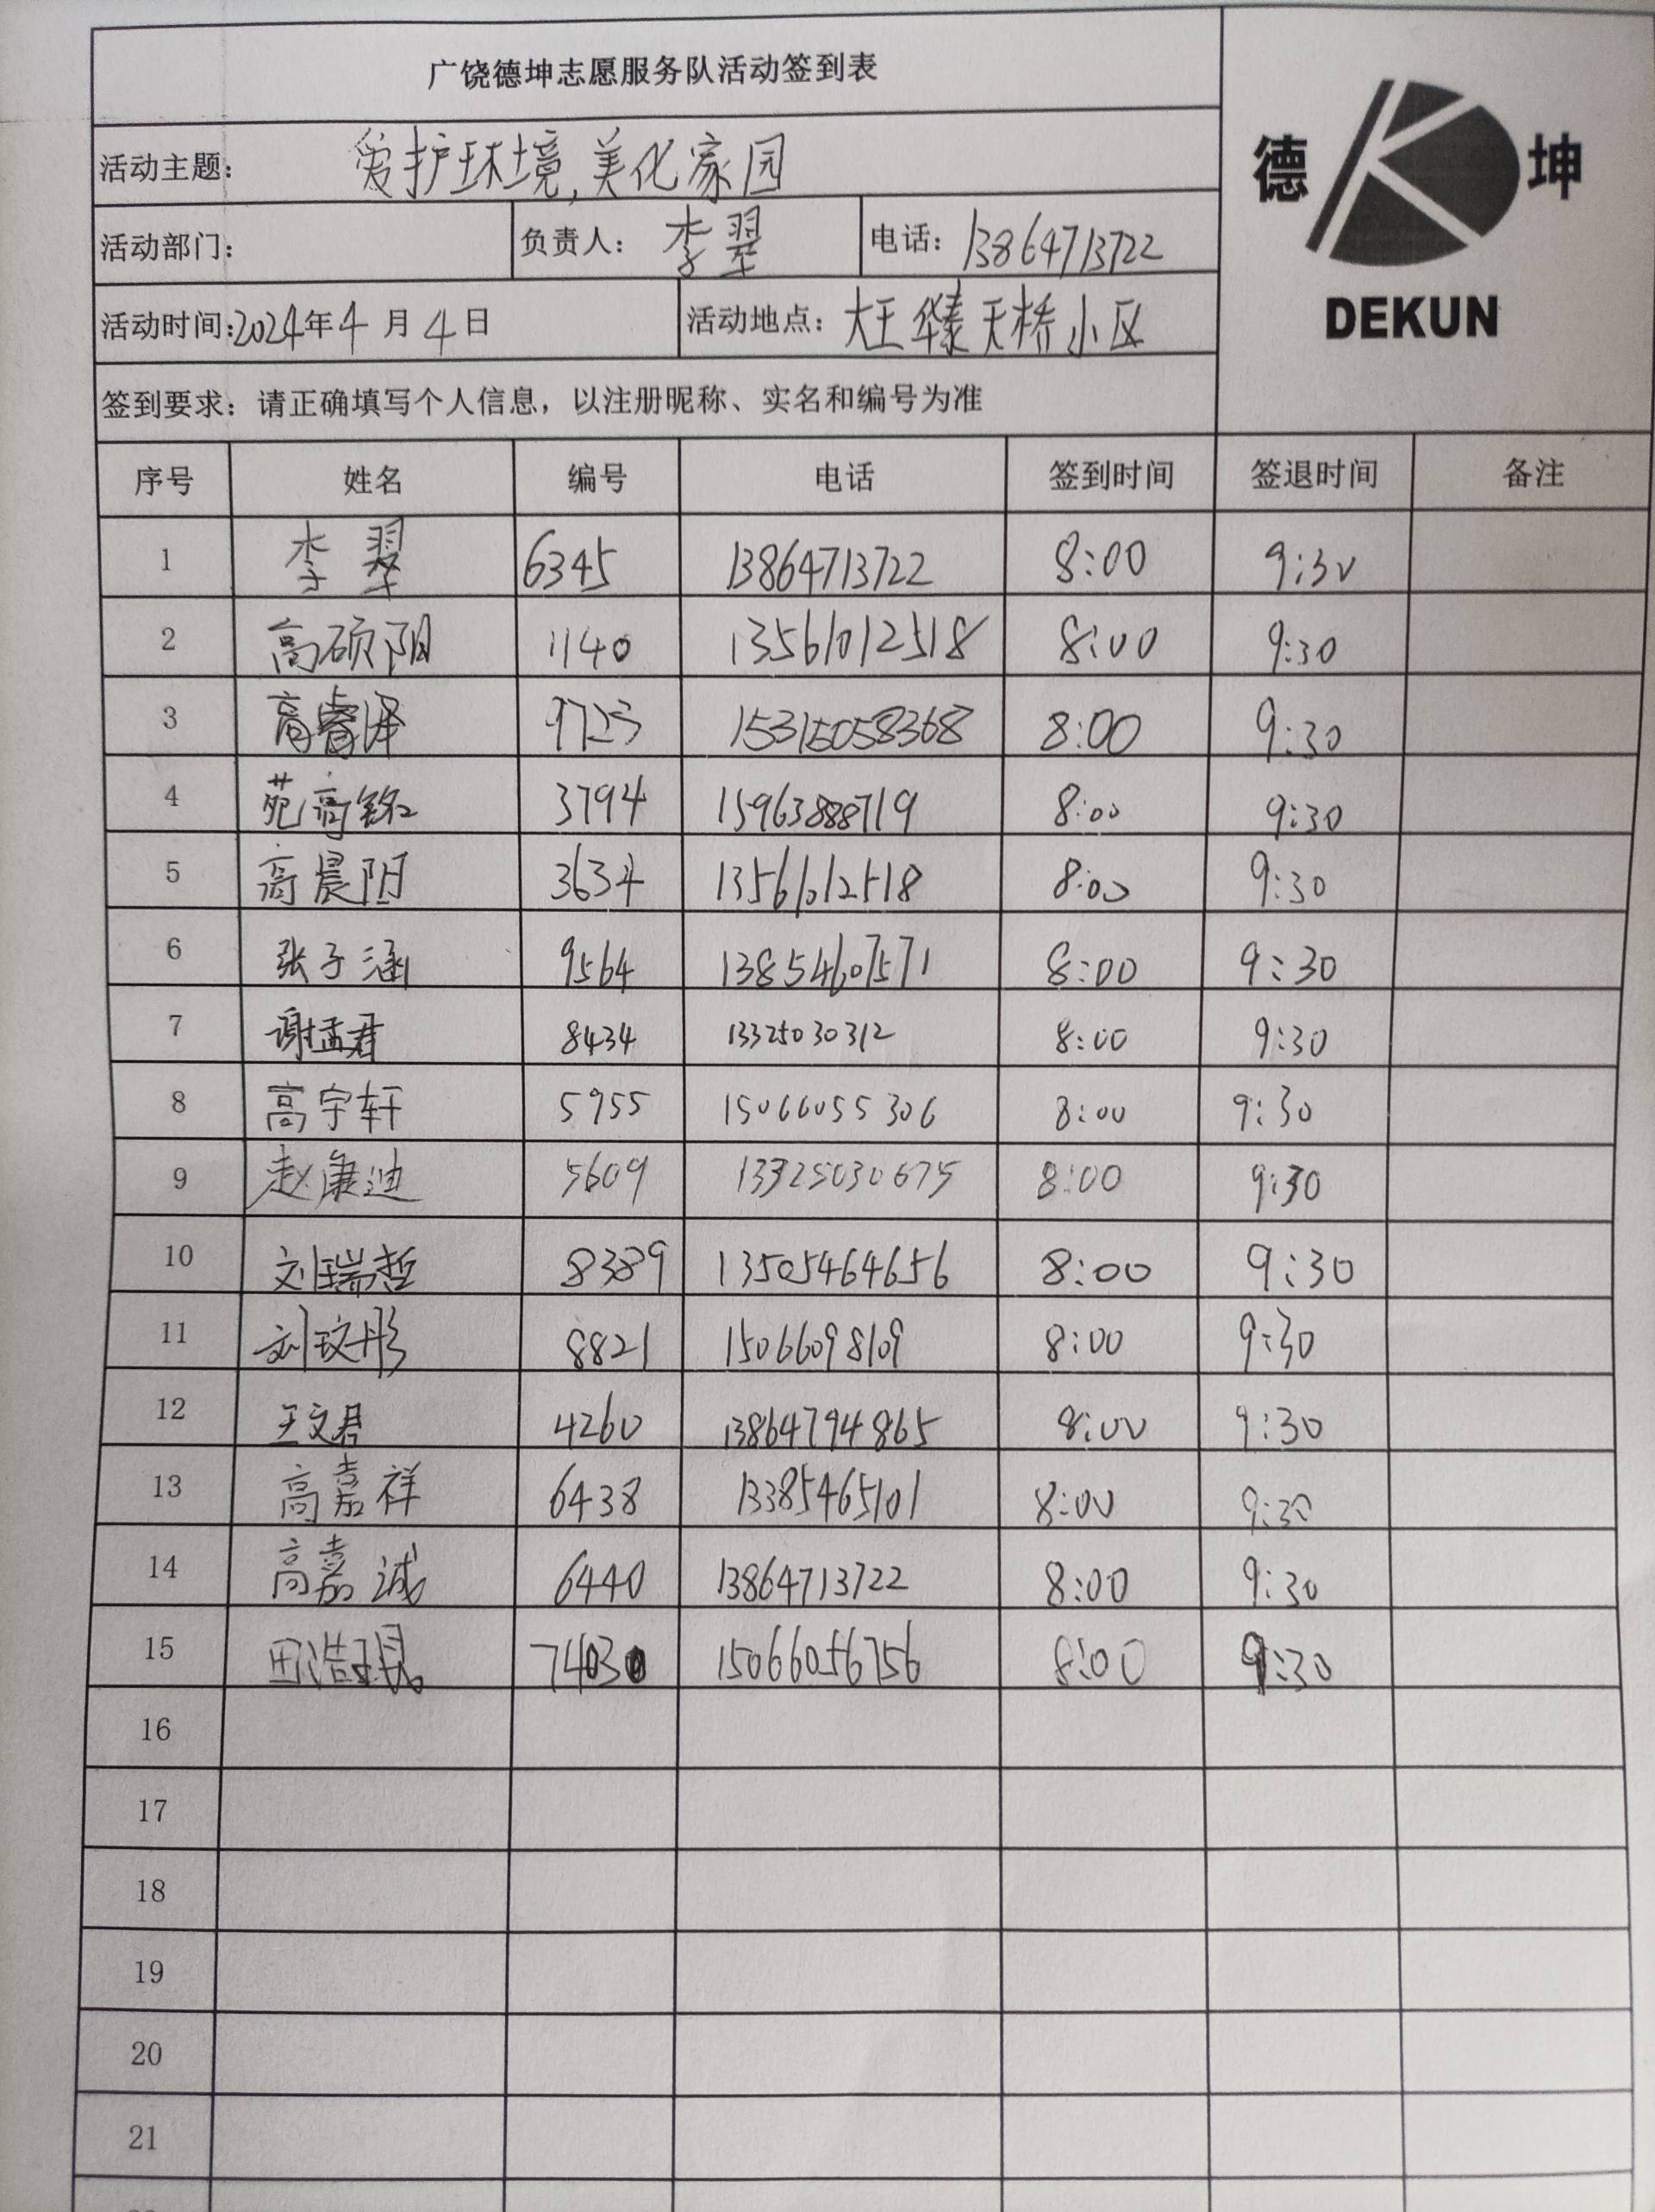 广饶德坤志愿服务队活动签到表
德 坤
DEKUN
活动主题： 爱护环境,美化家园
活动部门： 负责人： 李翠 电话： 13864713722
活动时间：2024年4月4日 活动地点： 大王华泰天桥小区
签到要求：请正确填写个人信息，以注册昵称、实名和编号为准
序号 姓名 编号 电话 签到时间 签退时间 备注
1 李翠 6345 13864713722 8:00 9:30
2 高硕阳 1140 13561012518 8:00 9:30
3 高睿泽 9723 15315058368 8:00 9:30
4 苑高铭 3794 15963888719 8:00 9:30
5 高晨阳 3634 13561012518 8:00 9:30
6 张子涵 9564 13854607571 8:00 9:30
7 谢孟君 8434 13325030312 8:00 9:30
8 高宇轩 5955 15066055306 8:00 9:30
9 赵康迪 5609 13325030675 8:00 9:30
10 刘瑞哲 8389 13505464656 8:00 9:30
11 刘玟彤 8821 15066098109 8:00 9:30
12 王文君 4260 13864794865 8:00 9:30
13 高嘉祥 6438 13385465101 8:00 9:30
14 高嘉诚 6440 13864713722 8:00 9:30
15 田浩 15066056756 8:00 9:30
16
17
18
19
20
21